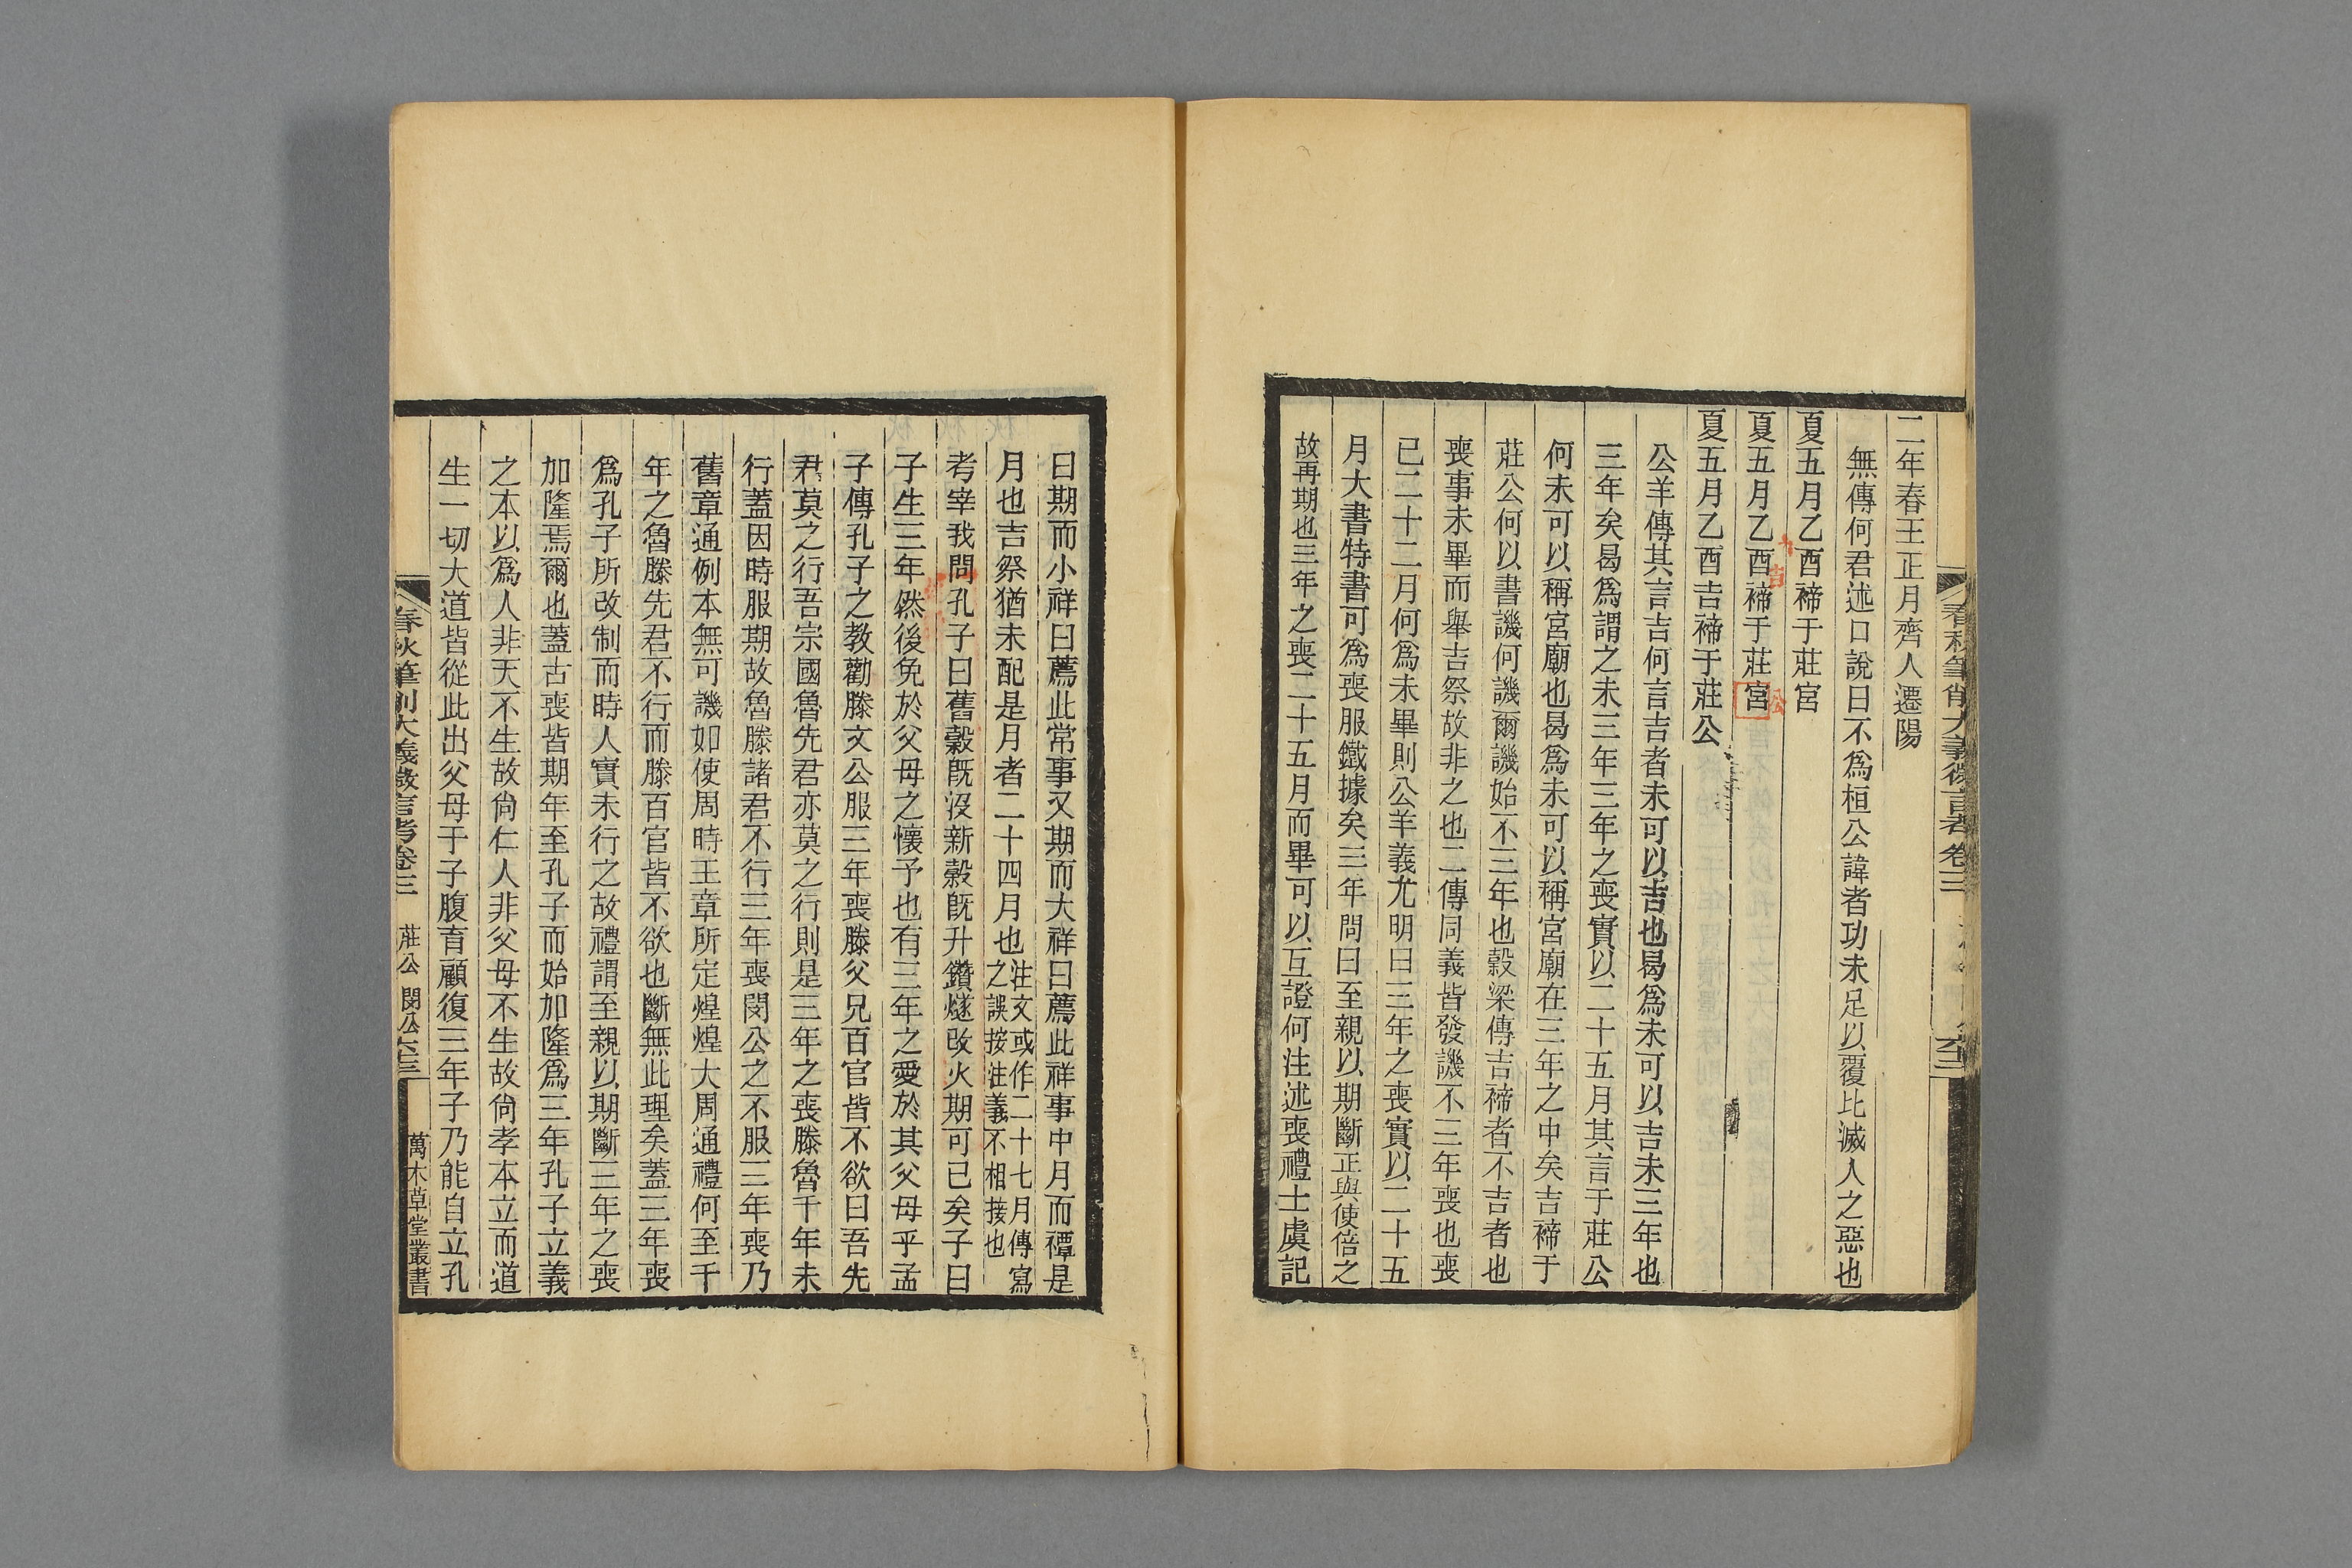 二年春王正月齊人遷陽
無傳何君述口說曰不爲桓公諱者功未足以覆比滅人之惡也
夏五月乙酉禘于莊宮
夏五月乙酉禘于莊宮
吉
公
夏五月乙酉吉禘于莊公
公羊傳其言吉何言吉者未可以吉也曷爲未可以吉未三年也
三年矣曷爲謂之未三年三年之喪實以二十五月其言于莊公
何未可以稱宮廟也曷爲未可以稱宮廟在三年之中矣吉禘于
莊公何以書譏何譏爾譏始不三年也穀梁傳吉禘者不吉者也
喪事未畢而舉吉祭故非之也二傳同義皆發譏不三年喪也喪
已二十二月何爲未畢則公羊義尤明曰三年之喪實以二十五
月大書特書可爲喪服鐵據矣三年問曰至親以期斷正與使倍之
故再期也三年之喪二十五月而畢可以互證何注述喪禮士虞記
曰期而小祥曰薦此常事又期而大祥曰薦此祥事中月而禫是
月也吉祭猶未配是月者二十四月也注文或作二十七月傳寫
之誤按注義不相接也
考宰我問孔子曰舊穀既沒新穀既升鑽燧改火期可已矣子曰
子生三年然後免於父母之懷予也有三年之愛於其父母乎孟
子傳孔子之教勸滕文公服三年喪滕父兄百官皆不欲曰吾先
君莫之行吾宗國魯先君亦莫之行則是三年之喪滕魯千年未
行蓋因時服期故魯滕諸君不行三年喪閔公之不服三年喪乃
舊章通例本無可譏如使周時王章所定煌煌大周通禮何至千
年之魯滕先君不行而滕百官皆不欲也斷無此理矣蓋三年喪
爲孔子所改制而時人實未行之故禮謂至親以期斷三年之喪
加隆焉爾也蓋古喪皆期年至孔子而始加隆爲三年孔子立義
之本以爲人非天不生故尙仁人非父母不生故尙孝本立而道
生一切大道皆從此出父母于子腹育顧復三年子乃能自立孔
春秋筆削大義微言考卷三 莊公 閔公 六三 萬木草堂叢書